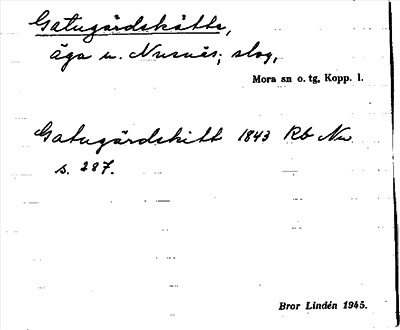 Gatugårdskätte,
äga u. Nusnäs; slog,
Mora sn o. tg, Kopp. l.
Gatugårdskitt 1843 Rb Nu
s. 287.
Bror Lindén 1945.